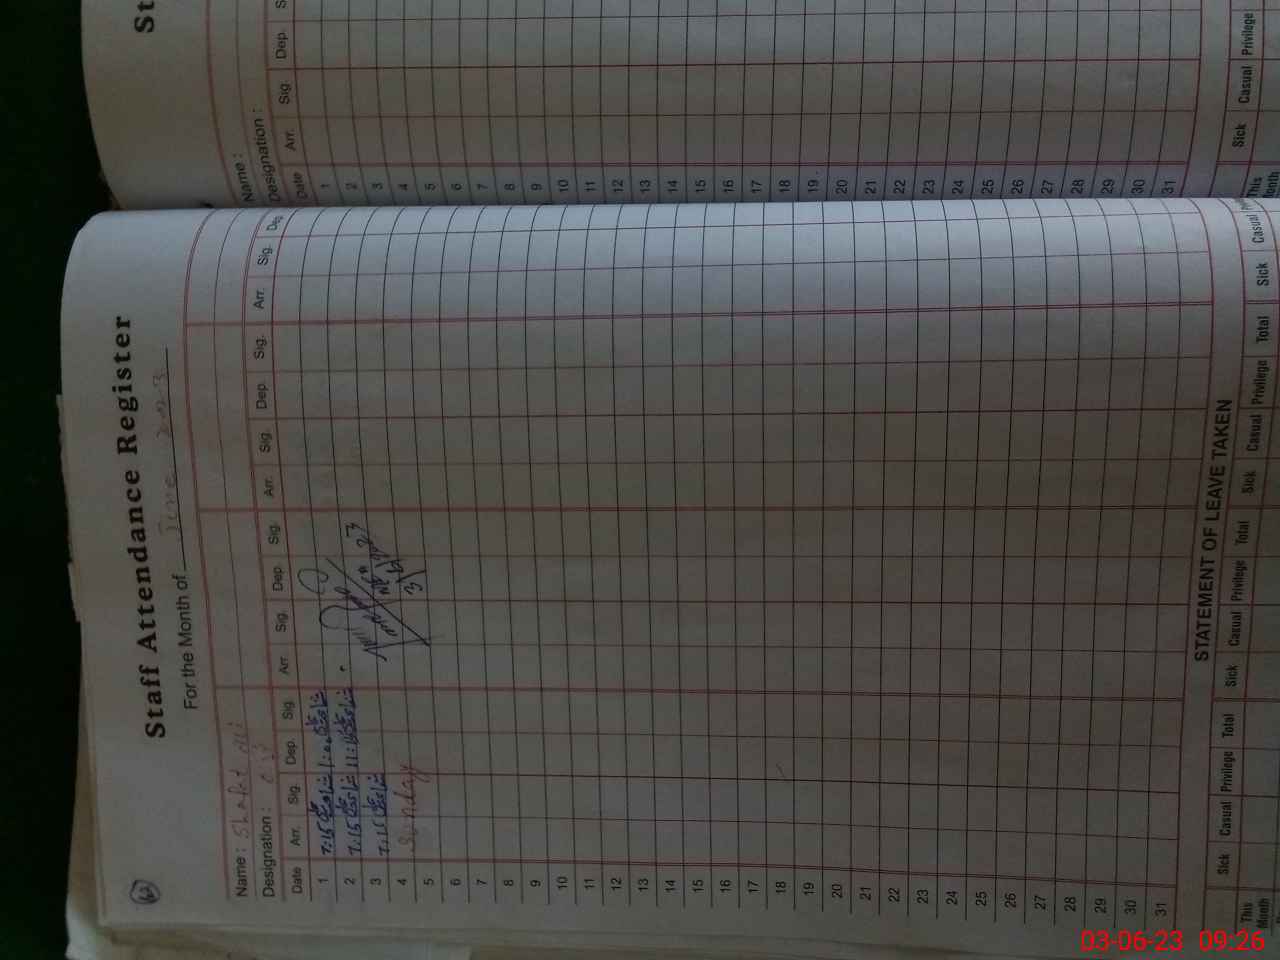 62
Staff Attendance Register
For the Month of June 2023
Name :
Designation :
Date Arr. Sig. Dep. Sig. Arr Sig. Dep. Sig. Arr. Sig. Dep. Sig. Arr. Sig. Dep.
1 7:15 1:00
2 7:15 11:
3 7:15
4 Sunday
5
6
7
8
9
10
11
12
13
14
15
16
17
18
19
20
21
22
23
24
25
26
27
28
29
30
31
STATEMENT OF LEAVE TAKEN
Sick Casual Privilege Total Sick Casual Privilege Total Sick Casual Privilege Total Sick Casual
This Month
Name :
Designation :
Date Arr. Sig Dep.
1
2
3
4
5
6
7
8
9
10
11
12
13
14
15
16
17
18
19
20
21
22
23
24
25
26
27
28
29
30
31
Sick Casual Privilege
This Month
03-06-23 09:26